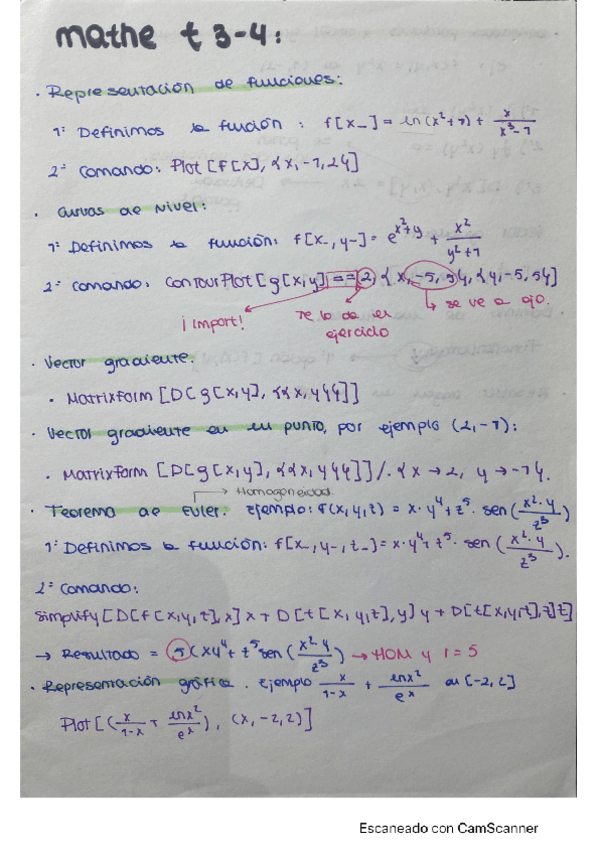 mathe t 3-4:
· Representación de funciones:
1º Definimos la función: f[x_] = ln(x²+1) + x/(x³-1)
2º Comando: Plot [f[x], {x,-1,2}]
· Curvas de Nivel:
1º Definimos la función: f[x_, y_] = e^(x²+y) + x²/(y²+1)
2º Comando: ContourPlot [g[x,y] == 2, {x,-5,5}, {y,-5,5}]
¡import!
Te lo da el ejercicio
se ve a ojo.
· Vector gradiente:
· Matrixform [D[g[x,y], {{x,y}}]]
· Vector gradiente en un punto, por ejemplo (2,-1):
· Matrixform [D[g[x,y], {{x,y}}]] /. {x → 2, y → -1}.
Homogoneidad
· Teorema de Euler. Ejemplo: f(x,y,z) = x·y⁴ + z⁵· sen(x²·y/z³)
1º Definimos la función: f[x_, y_, z_] = x·y⁴ + z⁵· sen(x²·y/z³).
2º Comando:
Simplify [D[f[x,y,z],x] x + D[f[x,y,z],y] y + D[f[x,y,z],z] z]
→ Resultado = 5(xy⁴ + z⁵ sen(x²·y/z³) → HOM y 1 = 5
· Represemación gráfica. Ejemplo x/(1-x) + lnx²/e^x en [-2,2]
Plot [(x/(1-x) + lnx²/e^x), (x,-2,2)]
Escaneado con CamScanner